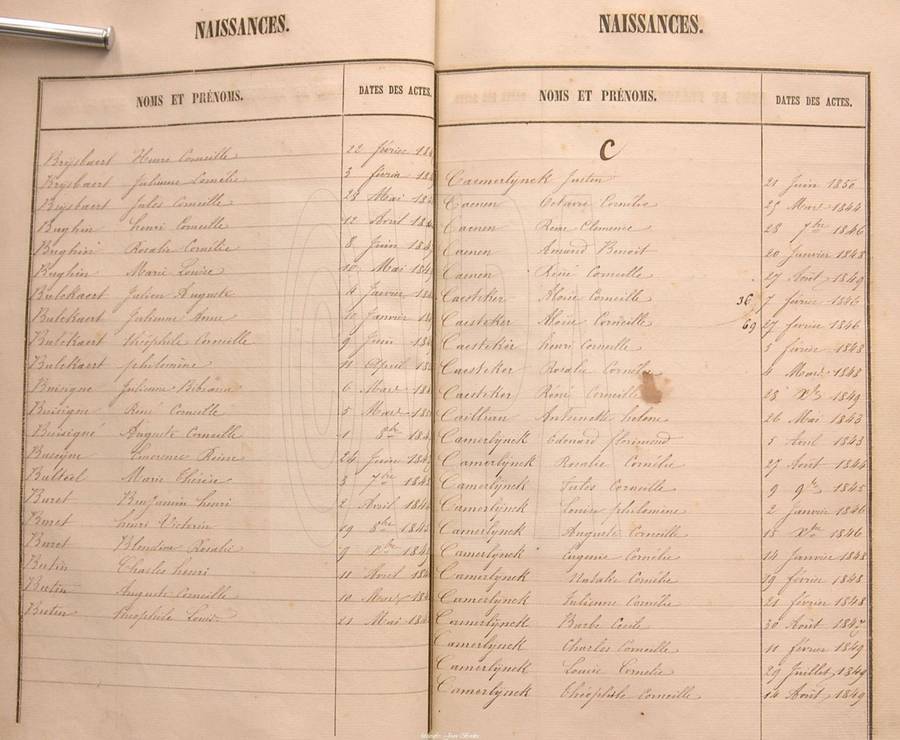 NAISSANCES.
NOMS ET PRÉNOMS. DATES DES ACTES.
Brysbaert Henri Corneille 22 février
Brysbaert Julienne Cornélie 3 février
Brysbaert Jules Corneille 28 Mai
Bughin henri Corneille 12 Avril
Bughin Rosalie Cornélie 8 Juin
Bughin Marie Louise 10 Mai
Bulckaert Julien Auguste 4 Janvier
Bulckaert Julienne Anne 10 Janvier
Bulckaert théophile Corneille 9 Juin
Bulckaert philomène 11 Avril
Buisigne Julienne Bibiana 6 Mars
Buisigne René Corneille 5 Mars
Buisigné Auguste Corneille 1 8bre
Buisigne Laurence Reine 24 Juin
Bulteel Marie Thérèse 3 7bre
Buret Benjamin henri 2 Avril
Buret henri Victorin 19 8bre
Buret Blondine Rosalie 9
Butin Charles henri 11 Avril
Butin Auguste Corneille 10 Mars
Butin théophile Louis 21 Mai
NAISSANCES.
NOMS ET PRÉNOMS. DATES DES ACTES.
C
Caemerlynck Justin 21 Juin 1850
Caenen Octavie Cornélie 25 Mars 1844
Caenen Reine Clemence 28 7bre 1846
Caenen Amand Benoit 20 Janvier 1848
Caenen René Corneille 27 Août 1849
Caesteker Aloïse Corneille 36 7 février 1846
Caesteker Aloïse Corneille 69 27 février 1846
Caesteker henri Corneille 3 février 1848
Caesteker Rosalie Cornélie 4 Mars 1848
Caesteker René Corneille 28 Xbre 1849
Cailliau Antoinette helène 26 Mai 1843
Camerlynck Edouard florimond 5 Avril 1843
Camerlynck Rosalie Cornélie 27 Août 1844
Camerlynck Jules Corneille 9 9bre 1845
Camerlynck Louise philomène 2 Janvier 1846
Camerlynck Auguste Corneille 15 Xbre 1846
Camerlynck Eugenie Cornélie 14 Janvier 1848
Camerlynck Natalie Cornélie 19 février 1848
Camerlynck Julienne Cornélie 21 février 1848
Camerlynck Barbe Cecile 30 Août 1847
Camerlynck Charles Corneille 11 février 1849
Camerlynck Louise Cornelie 29 Juillet 1849
Camerlynck théophile Corneille 14 Août 1849